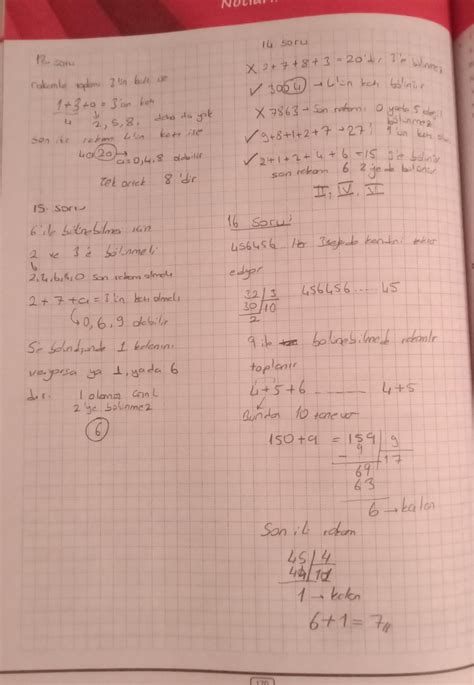 Notlar
12. soru
rakamlar toplamı 3'ün katı ise
1+3+a = 3'ün katı
4 2, 5, 8,
son iki rakam 4'ün katı ise
4a2a → 0,4,8 olabilir
Tek ortak 8'dir
15. soru
6 ile bölünebilmesi için
2 ve 3'e bölünmeli
2,4,6,8,0 son rakam olmalı
2+7+a = 3'ün katı olmalı
0, 6, 9 olabilir
Se bölündüğünde 1 kalanını
veriyorsa ya 1, ya da 6
dır. 1 olamaz çünkü
2'ye bölünmez
6
14 soru
X 2+7+8+3=20'dir 3'e bölünmez
✓ 3004 → 4'ün katı bölünür
X 7863 → Son rakam 0 yada 5 değil bölünmez
✓ 9+8+1+2+7 → 27 9'un katı
✓ 2+1+2+4+6=15 3'e bölünür
son rakam 6 2'ye de bölünür
II, V, V
16 soru:
456456 Her 3 sayıda kendini tekrar
ediyor
32 / 3
30 / 10
2
456456.....45
9 ile bölünebilmede rakamlar
toplanır
4+5+6 ........ 4+5
Bundan 10 tane var
150+9 = 159 / 9
- 9 / 17
69
63
6 → kalan
Son iki rakam
45 / 4
44 / 11
1 → kalan
6+1=7